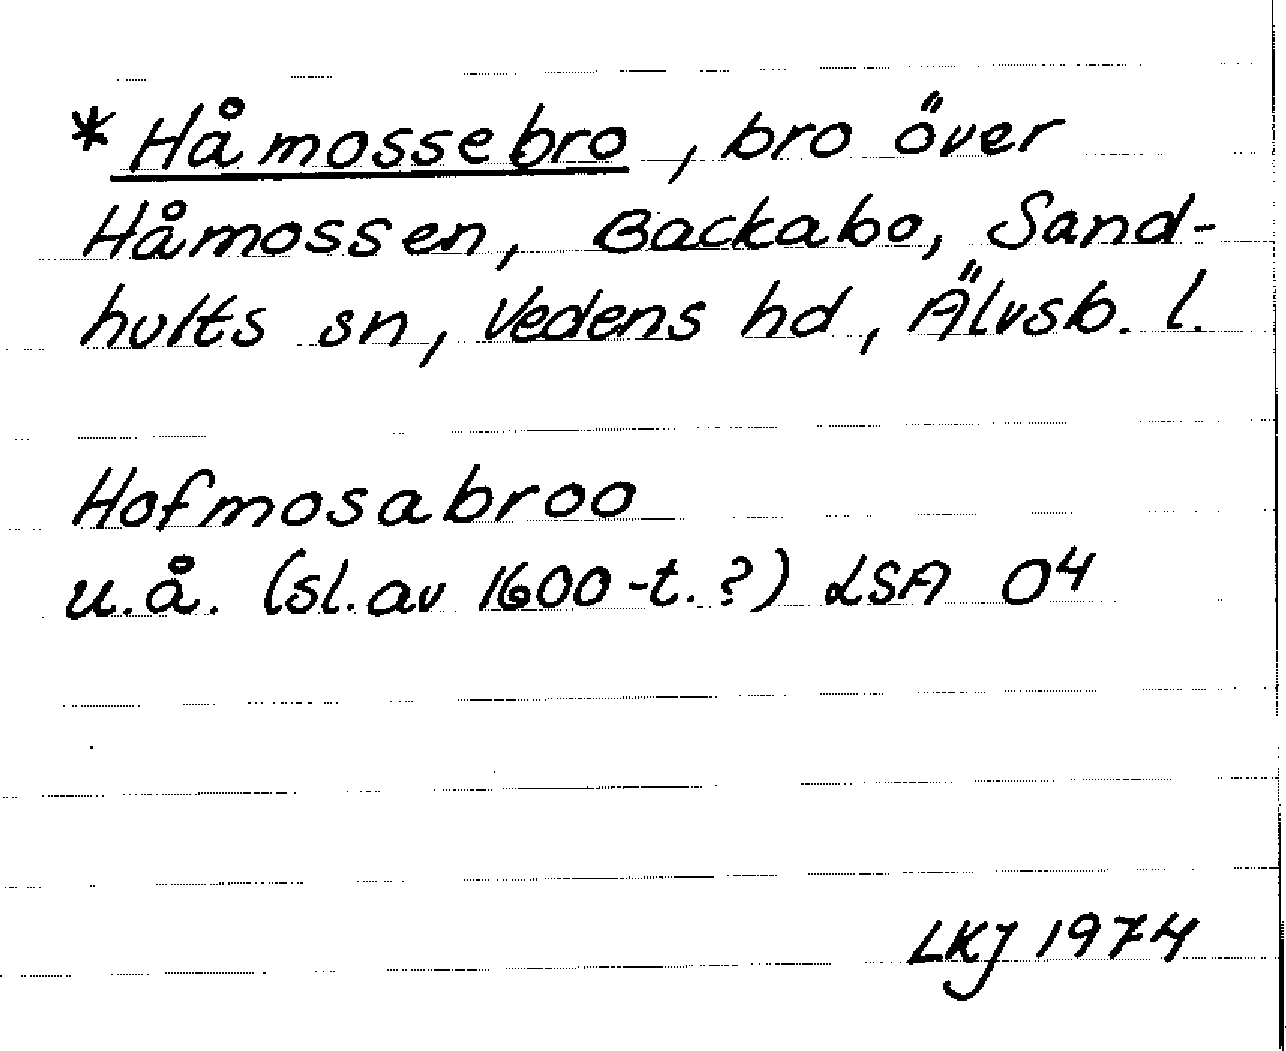 *Håmossebro, bro över
Håmossen, Backabo, Sand-
hults sn, Vedens hd, Älvsb. l.
Hofmosabroo
u.å. (sl. av 1600-t.?) LSA O4
LKJ 1974